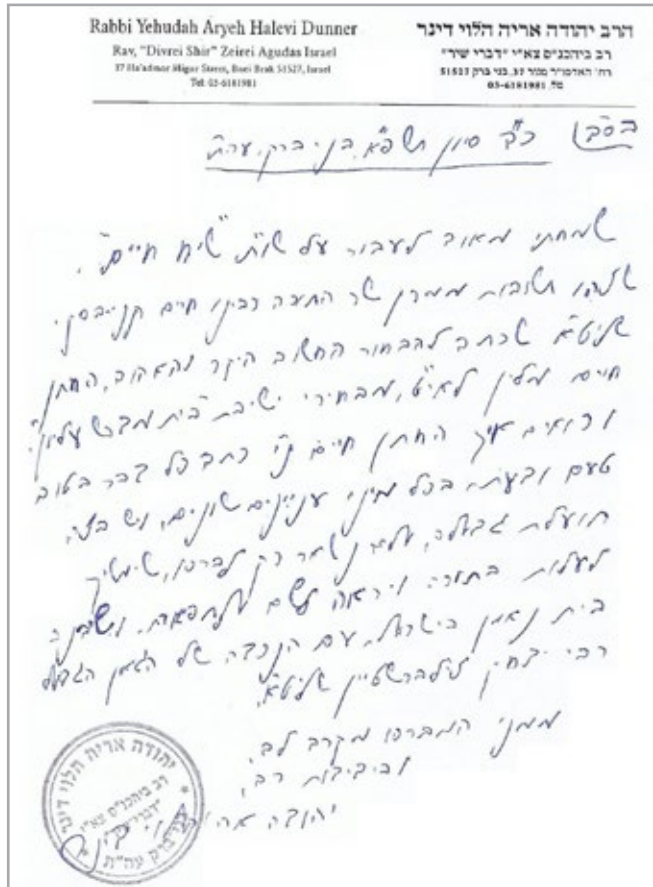 Rabbi Yehudah Aryeh Halevi Dunner
Rav, "Divrei Shir" Zeirei Agudas Israel
37 Ha'admor Migur Street, Bnei Brak 51527, Israel
Tel: 03-6181981
הרב יהודה אריה הלוי דינר
רב ביהכנ"ס צא"י "דברי שיר"
רח' האדמו"ר מגור 37, בני ברק 51527
טל. 03-6181981
בס"ד כ"ב סיון תשפ"א, בני-ברק, עיה"ת
שמחתי מאוד לעבור על שו"ת "שיח חיים",
שאלות תשובות ממרן שר התורה רבינו חיים קנייבסקי
שליט"א שכתב להבחור החשוב היקר והאהוב, החתן
חיים מלין לאי"ט, מבחירי ישיבת "בית מדרש עליון"
ורואים איך החתן חיים ני"ו כתב כל דבר בטוב
טעם ודעת, בכל מיני עניינים שונים, ויש בזה
תועלת גדולה, ולא נשאר רק לברכו, שימשיך
לעלות בתורה ויראה לשם ולתפארת, ושיבנה
בית נאמן בישראל, עם הנכדה של הגאון הגדול
רבי יצחק זילברשטיין שליט"א,
ממני המברכו מקרב לב,
ובידידות רב,
יהודה אריה הלוי דינר
יהודה אריה הלוי דינר
רב ביהכנ"ס צא"י
"דברי שיר"
בני ברק עיה"ת